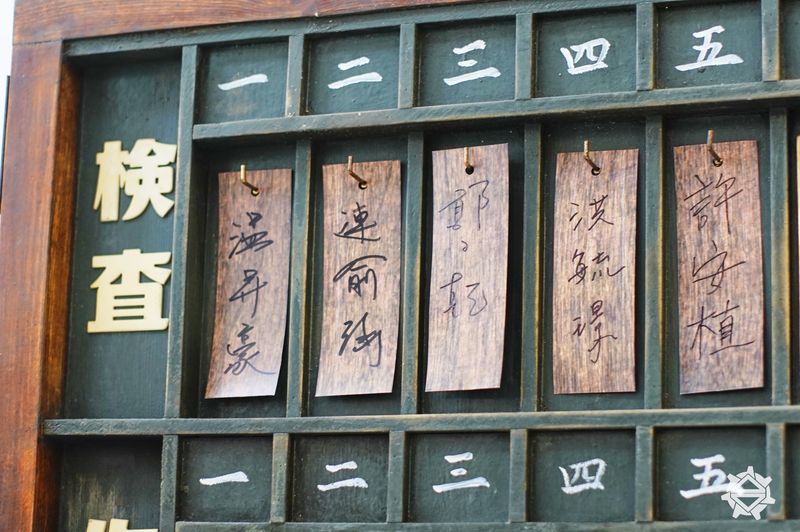 一 二 三 四 五
検査
温昇豪
連俞涵
郭子乾
洪毓璟
許安植
一 二 三 四 五